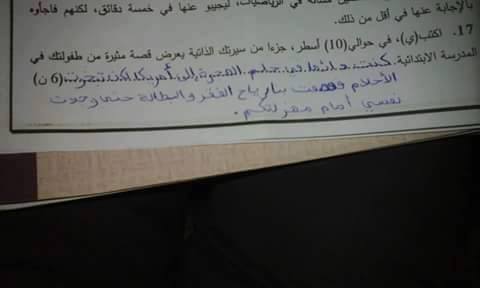 مسألة في الرياضيات، ليجيبو عنها في خمسة دقائق، لكنهم فاجأوه
بالإجابة عنها في أقل من ذلك.
17. اكتب(ي)، في حوالي(10) أسطر، جزءا من سيرتك الذاتية يعرض قصة مثيرة من طفولتك في
المدرسة الابتدائية. كنت دائما في حلم الهجرة إلى أمريكا لكن تبخرت (6 ن)
الأحلام وعصفت بنا رياح الفقر والبطالة حتى وجدت
نفسي أمام مهزلتكم.